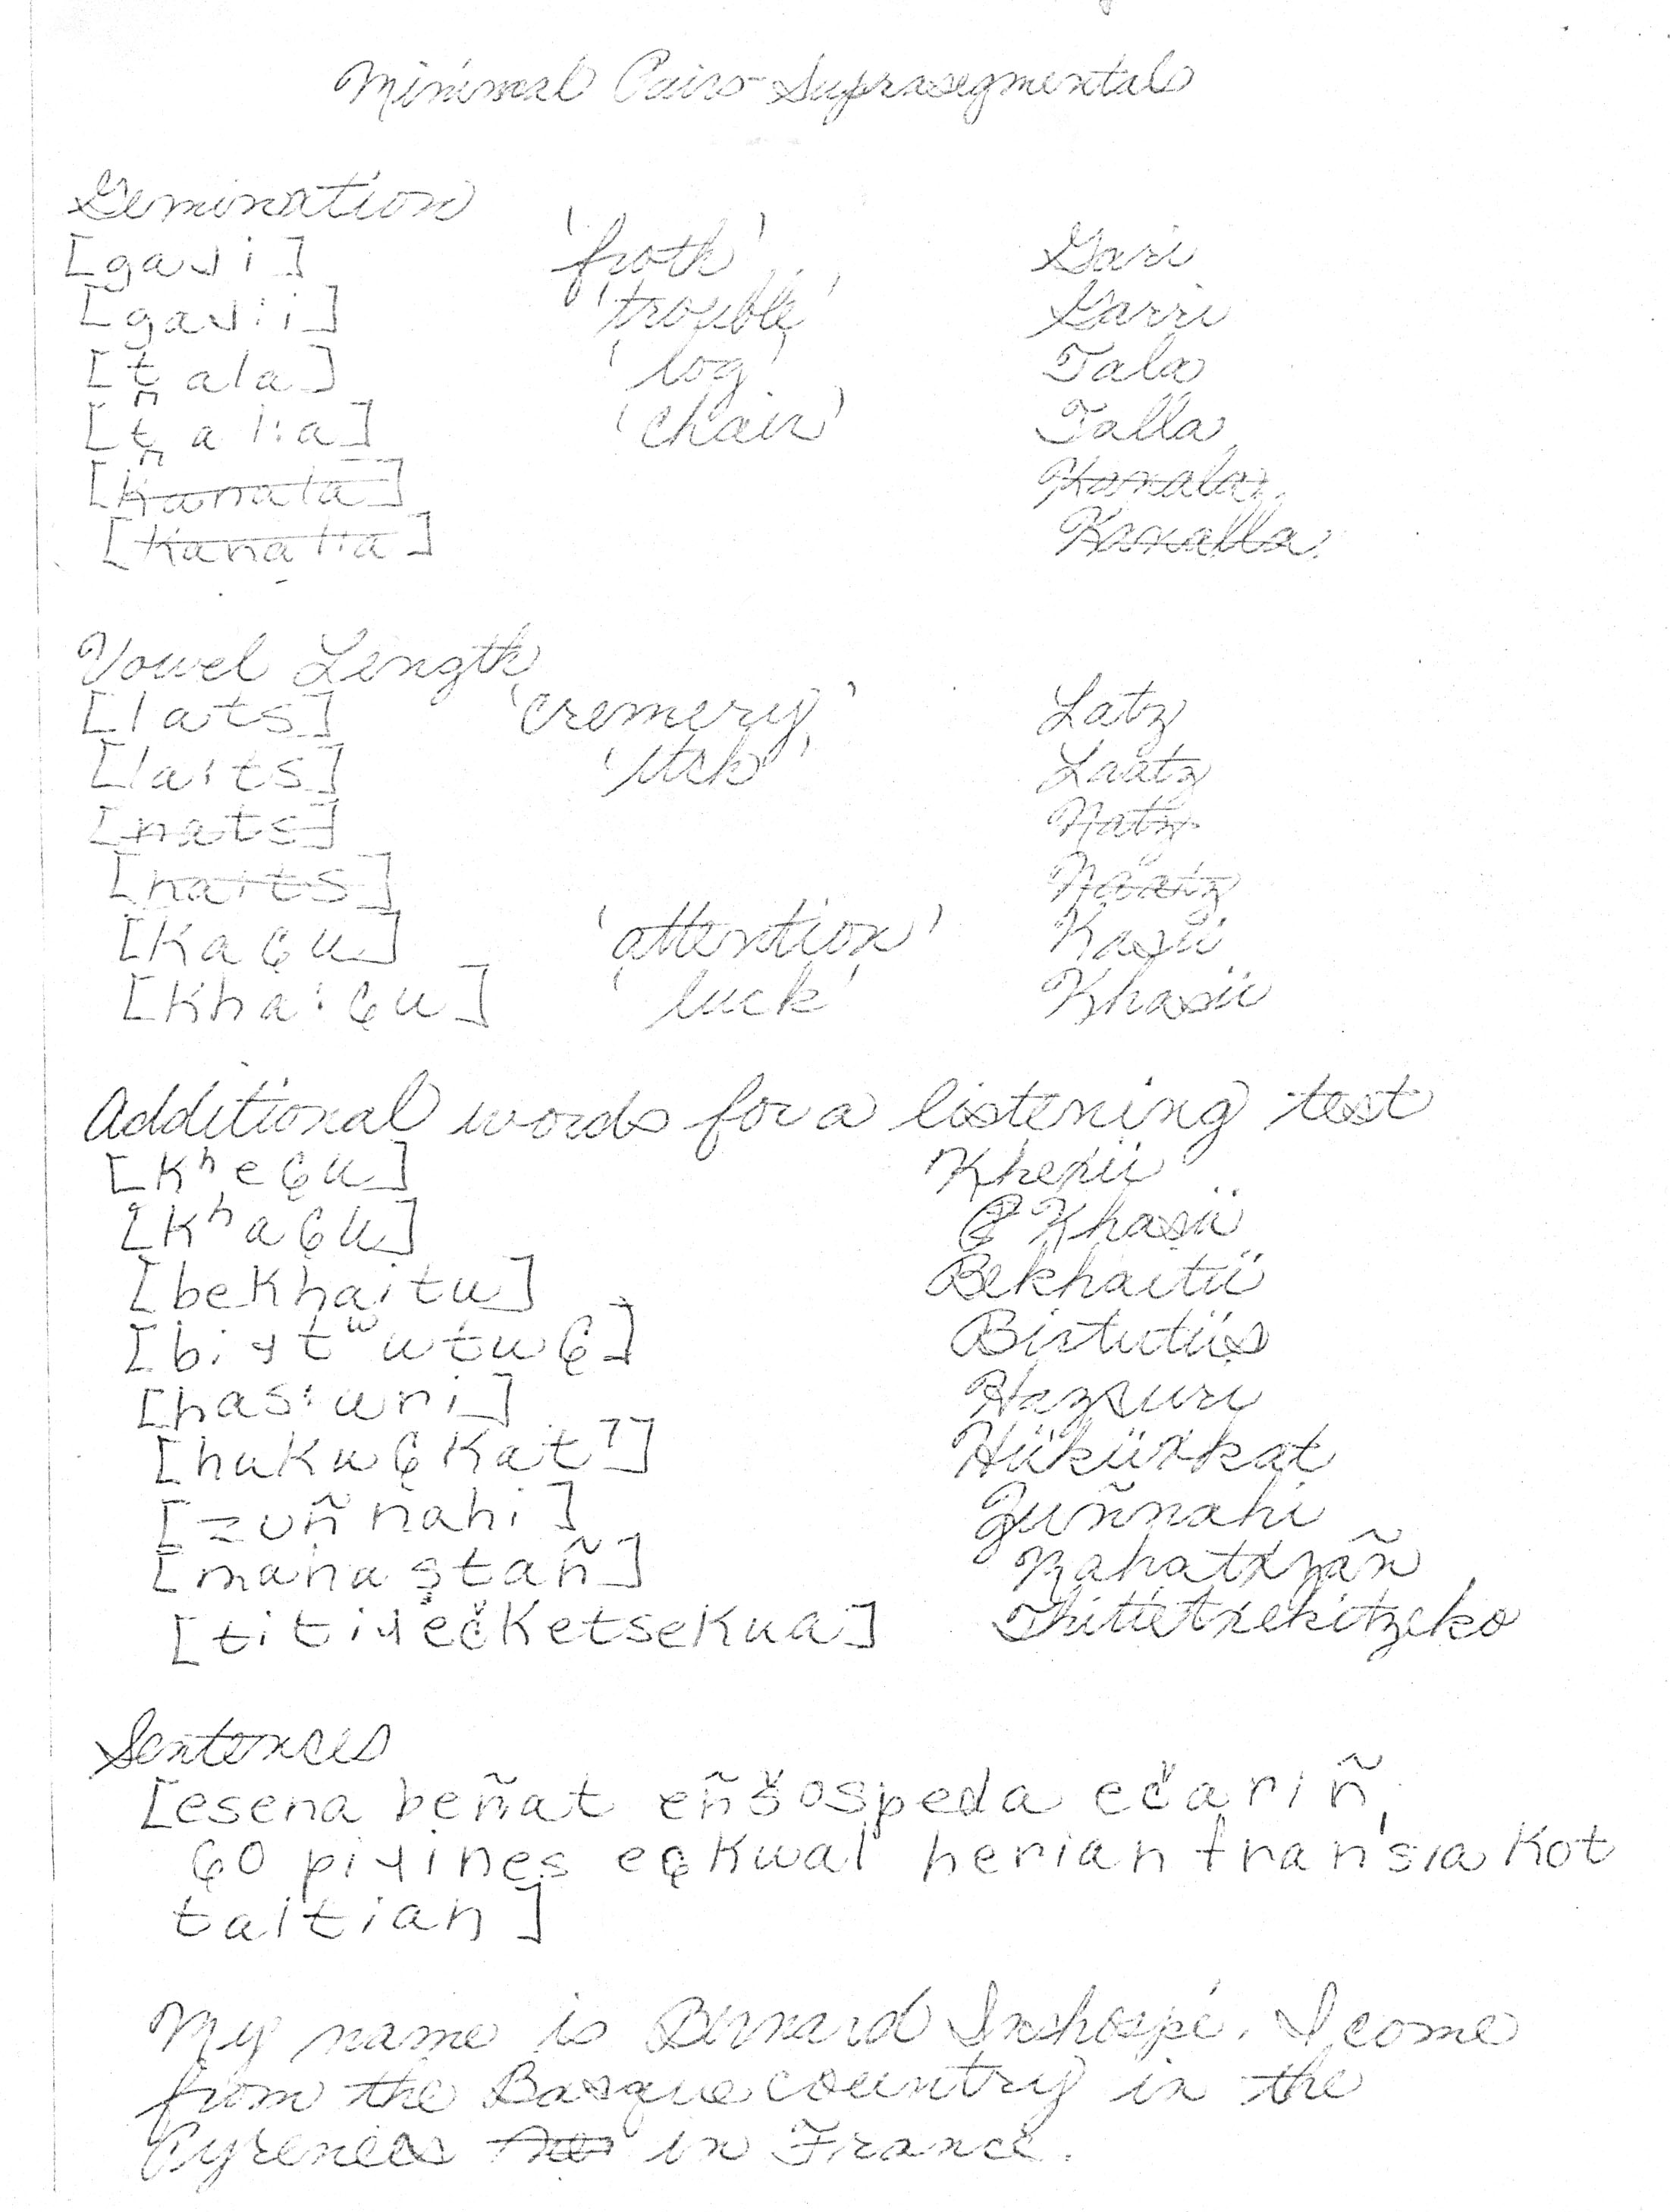 Minimal Pairs Suprasegmentals
Gemination
[gaɹi] 'froth' Gari
[gaɹ:i] 'trouble' Garri
[t̪ala] 'log' Tala
[t̪al:a] 'chain' Talla
[Kanala] Kanala
[Kanal:a] Kanalla
Vowel Length
[lats] 'cremery' Latz
[la:ts] 'itch' Laatz
[nats] Natz
[na:ts] Näätz
[Kaçu] 'attention' Kasü
[Kha:çu] 'luck' Khasü
Additional words for a listening test
[Kʰeçu] Khexü
[Kʰaçu] Khasü
[beKhaitu] Bekhaitü
[biɹtʷutuç] Birtutüs
[has:uri] Hazsuri
[hukuçKat̚] Hükürkat
[zuñnahi] Zuñnahi
[mahaṣtañ]
[titiɹečKetseKua] Thittetxekitzeko
Sentences
[esena beñat eñšospeda ečariñ,
ço piɹines eçKwal herian fransia Kot
taltian]
My name is Bernard Inshospé. I come
from the Basque country in the
Pyrenees in France.